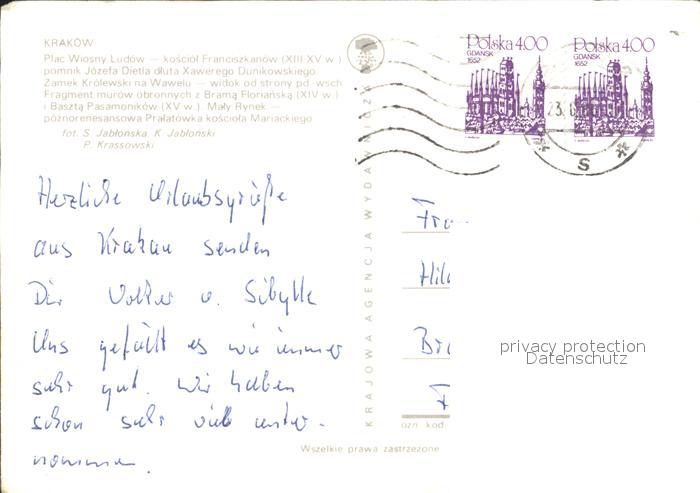 KRAKÓW
Plac Wiosny Ludów — kościół Franciszkanów (XIII-XV w.)
pomnik Józefa Dietla dłuta Xawerego Dunikowskiego
Zamek Królewski na Wawelu — widok od strony pd.-wsch.
Fragment murów obronnych z Bramą Floriańską (XIV w.)
i Basztą Pasamoników (XV w.) Mały Rynek —
późnorenesansowa Prałatówka kościoła Mariackiego
fot. S. Jabłońska, K. Jabłoński
P. Krassowski
Polska 4.00
GDAŃSK
1652
Polska 4.00
GDAŃSK
1652
S
KRAJOWA AGENCJA WYDAWNICZA
Herzliche Urlaubsgrüße
aus Krakau senden
Dir Volker u. Sibylle
Uns gefällt es wie immer
sehr gut. Wir haben
schon sehr viel unter-
nommen.
Fra
Hil
Br
ozn. kod
Wszelkie prawa zastrzeżone
privacy protection
Datenschutz